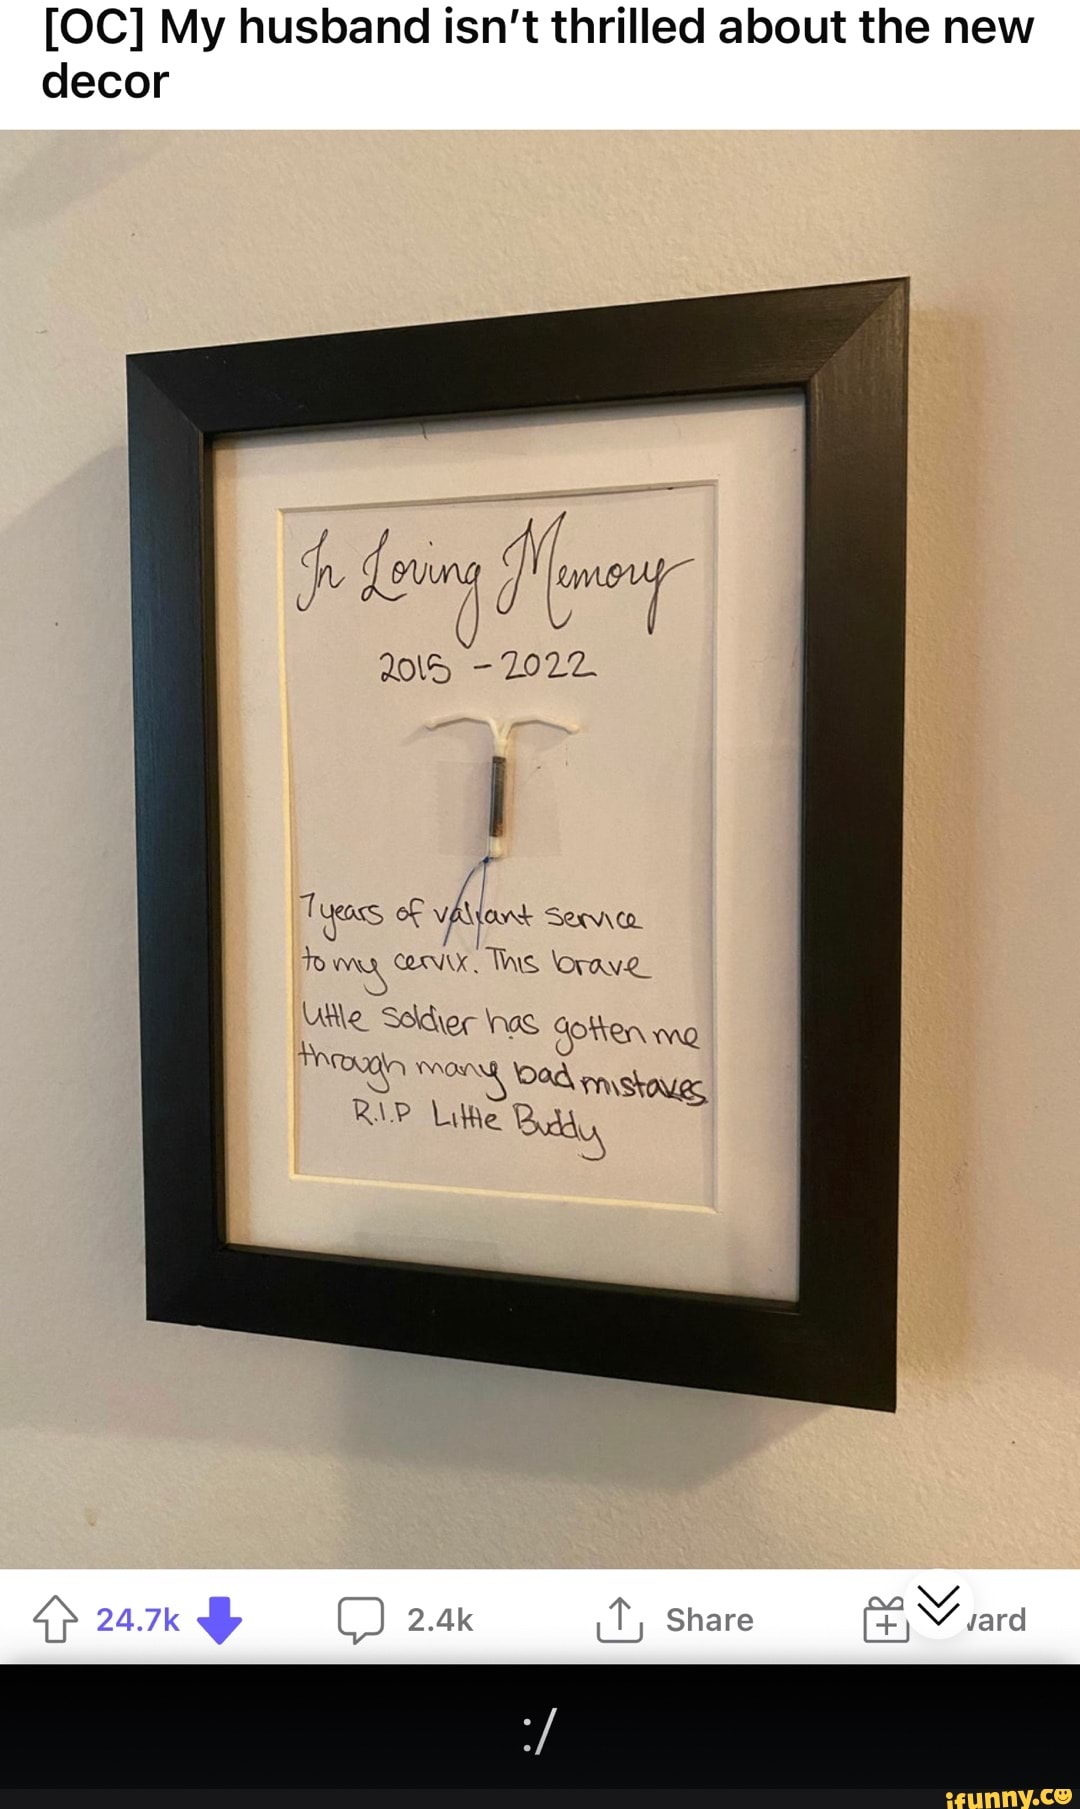 [OC] My husband isn't thrilled about the new
decor
In Loving Memory
2015 - 2022
7 years of valiant service
to my cervix. This brave
little soldier has gotten me
through many bad mistakes
R.I.P Little Buddy
24.7k 2.4k Share ward
:/
ifunny.co